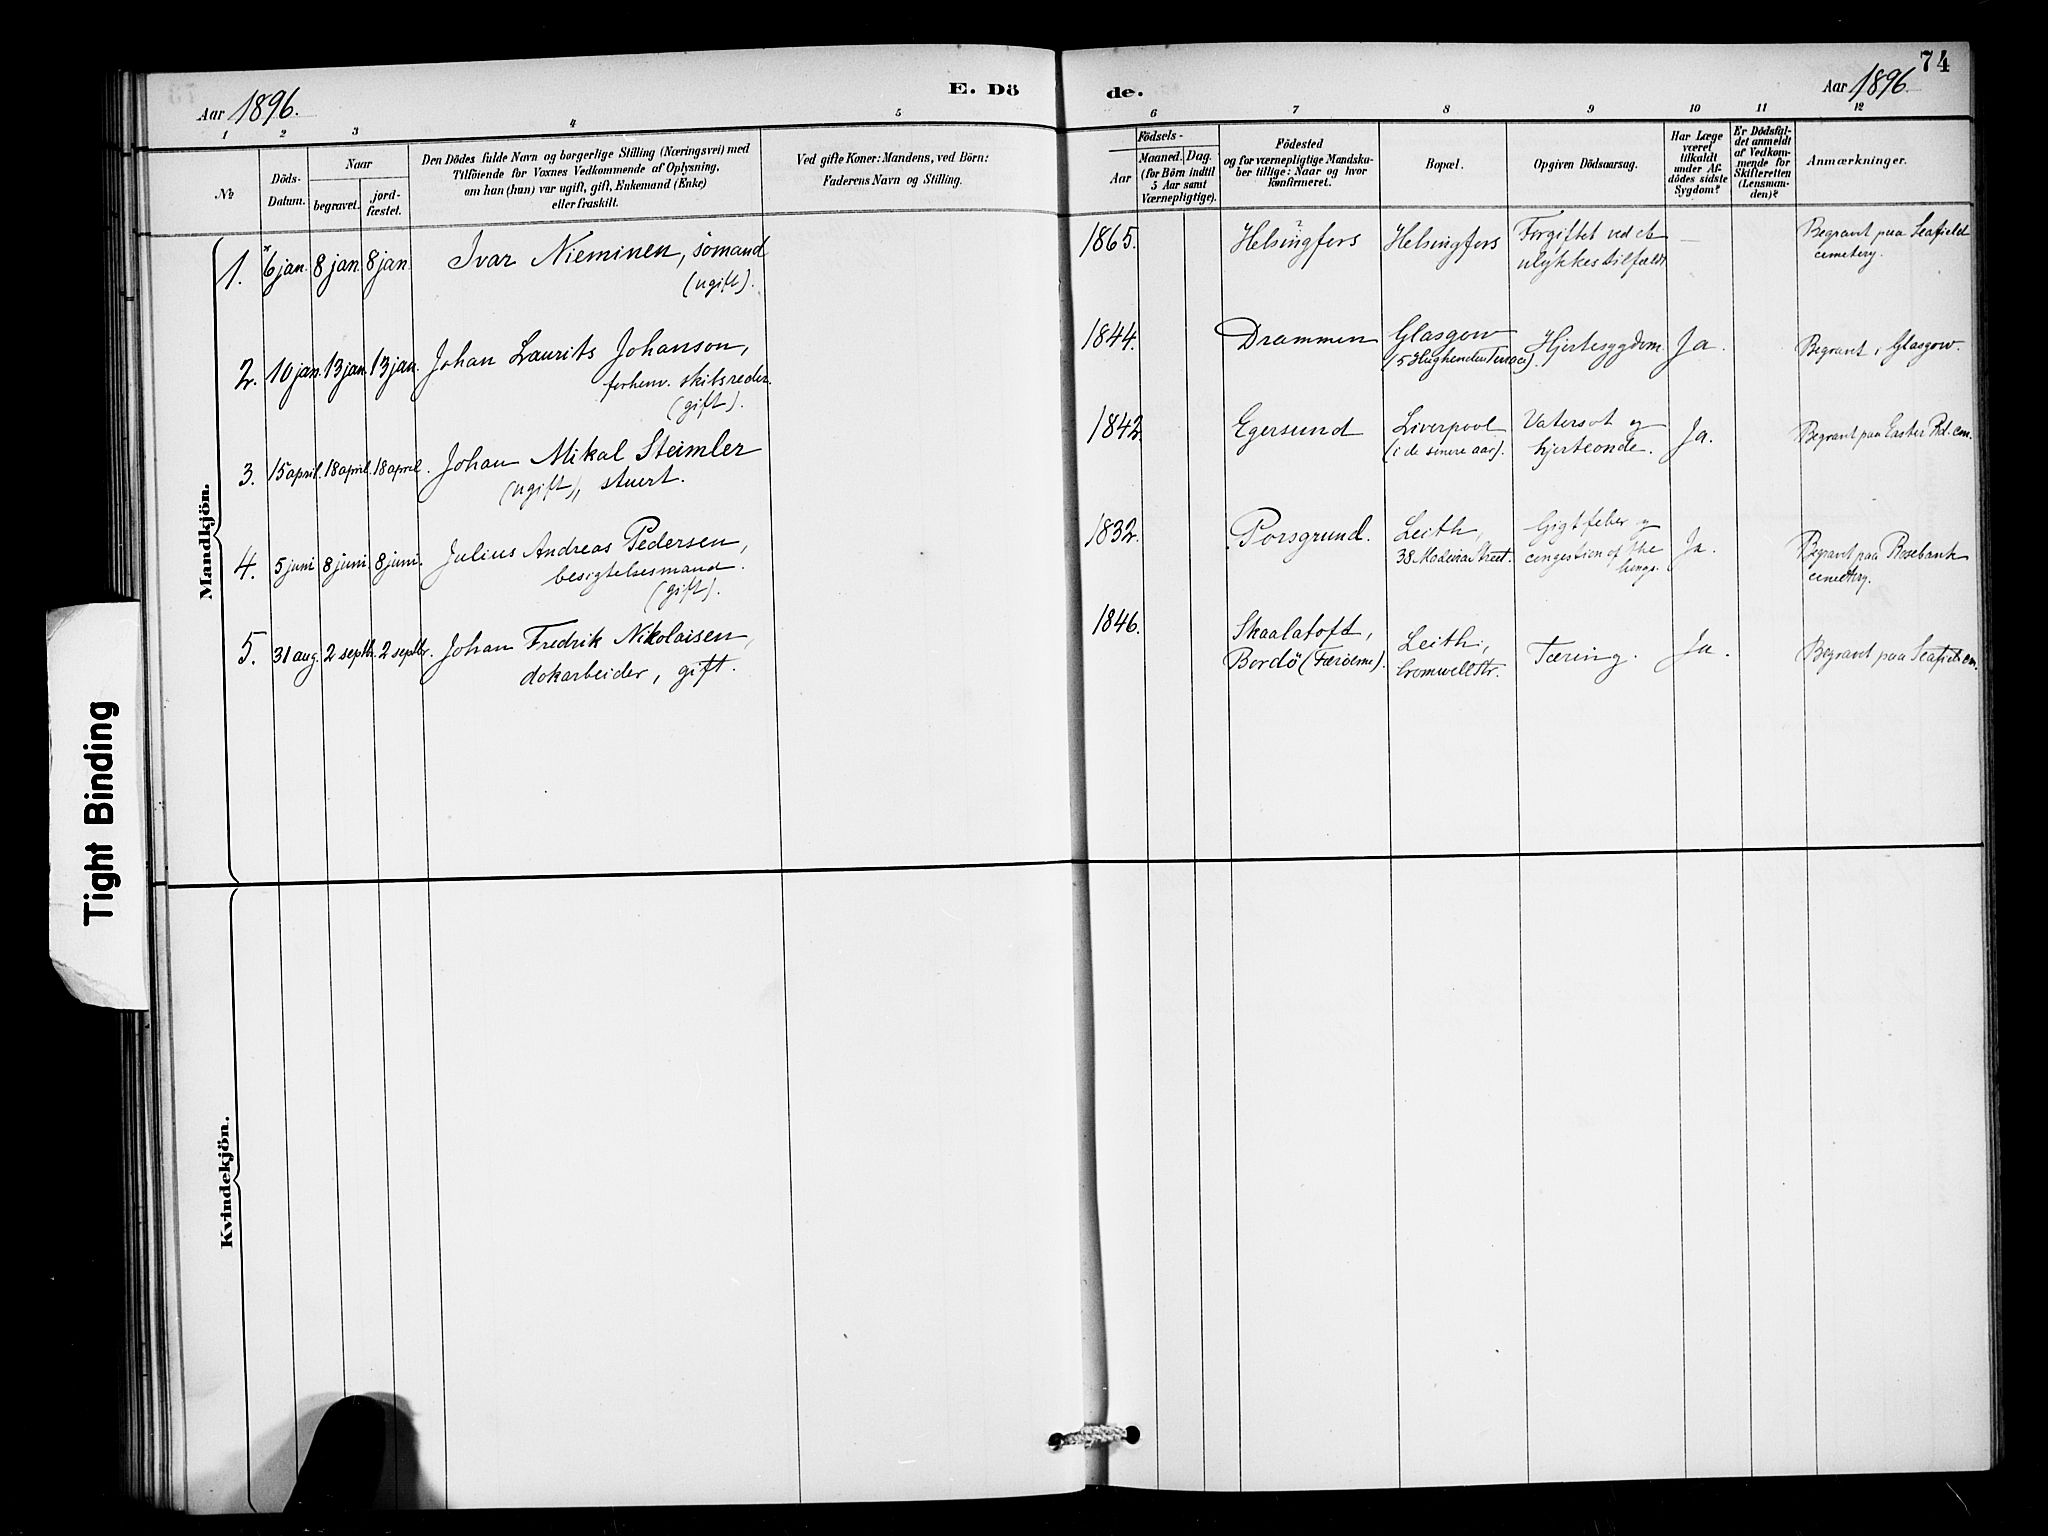 74
Aar 1896.
E. Dö
de.
Aar 1896
1 2 3 4 5 6 7 8 9 10 11 12
№
Döds-
Datum.
Naar
begravet.
jord-
fæstet.
Den Dödes fulde Navn og borgerlige Stilling (Næringsvei) med
Tilföiende for Voxnes Vedkommende af Oplysning,
om han (hun) var ugift, gift, Enkemand (Enke)
eller fraskilt.
Ved gifte Koner: Mandens, ved Börn:
Faderens Navn og Stilling.
Födsels-
Aar
Maaned. Dag.
(for Börn indtil
5 Aar samt
Værnepligtige).
Födested
og for værnepligtige Mandska-
ber tillige: Naar og hvor
konfirmeret.
Bopæl.
Opgiven Dödsaarsag.
Har Læge
været
tilkaldt
under Af-
dödes sidste
Sygdom?
Er Dödsfal-
det anmeldt
af Vedkom-
mende for
Skifteretten
(Lensman-
den)?
Anmærkninger.
Mandkjön.
1. *6 jan. 8 jan. 8 jan. Ivar Nieminen, sömand
(ugift).
1865. Helsingfors Helsingfors Forgiftet ved et
ulykkestilfælde
—
Begravet paa Seafield
cemetery.
2. 10 jan. 13 jan. 13 jan. Johan Laurits Johanson,
forhenv. skibsreder.
(gift).
1844. Drammen Glasgow
(5 Hughenden Terrace).
Hjertesygdom. Ja. Begravet i Glasgow.
3. 15 april. 18 april. 18 april. Johan Mikal Steimler
(ugift), stuert.
1842. Egersund Liverpool
(i de senere aar).
Vatersot og
hjerteonde.
Ja. Begravet paa Easter Rd. cem.
4. 5 juni 8 juni 8 juni. Julius Andreas Pedersen,
besigtelsesmand.
(gift).
1832. Porsgrund. Leith,
38 Madeira Street.
Gigtfeber og
congestion of the
lungs.
Ja. Begravet paa Rosebank
cemetery.
5. 31 aug. 2 septbr. 2 septbr. Johan Fredrik Nikolaisen,
dokarbeider, gift.
1846. Skaalatoft,
Bordö (Færöerne).
Leith,
Cromwell Str.
Tæring. Ja. Begravet paa Seafield cem.
Kvindekjön.
Tight Binding